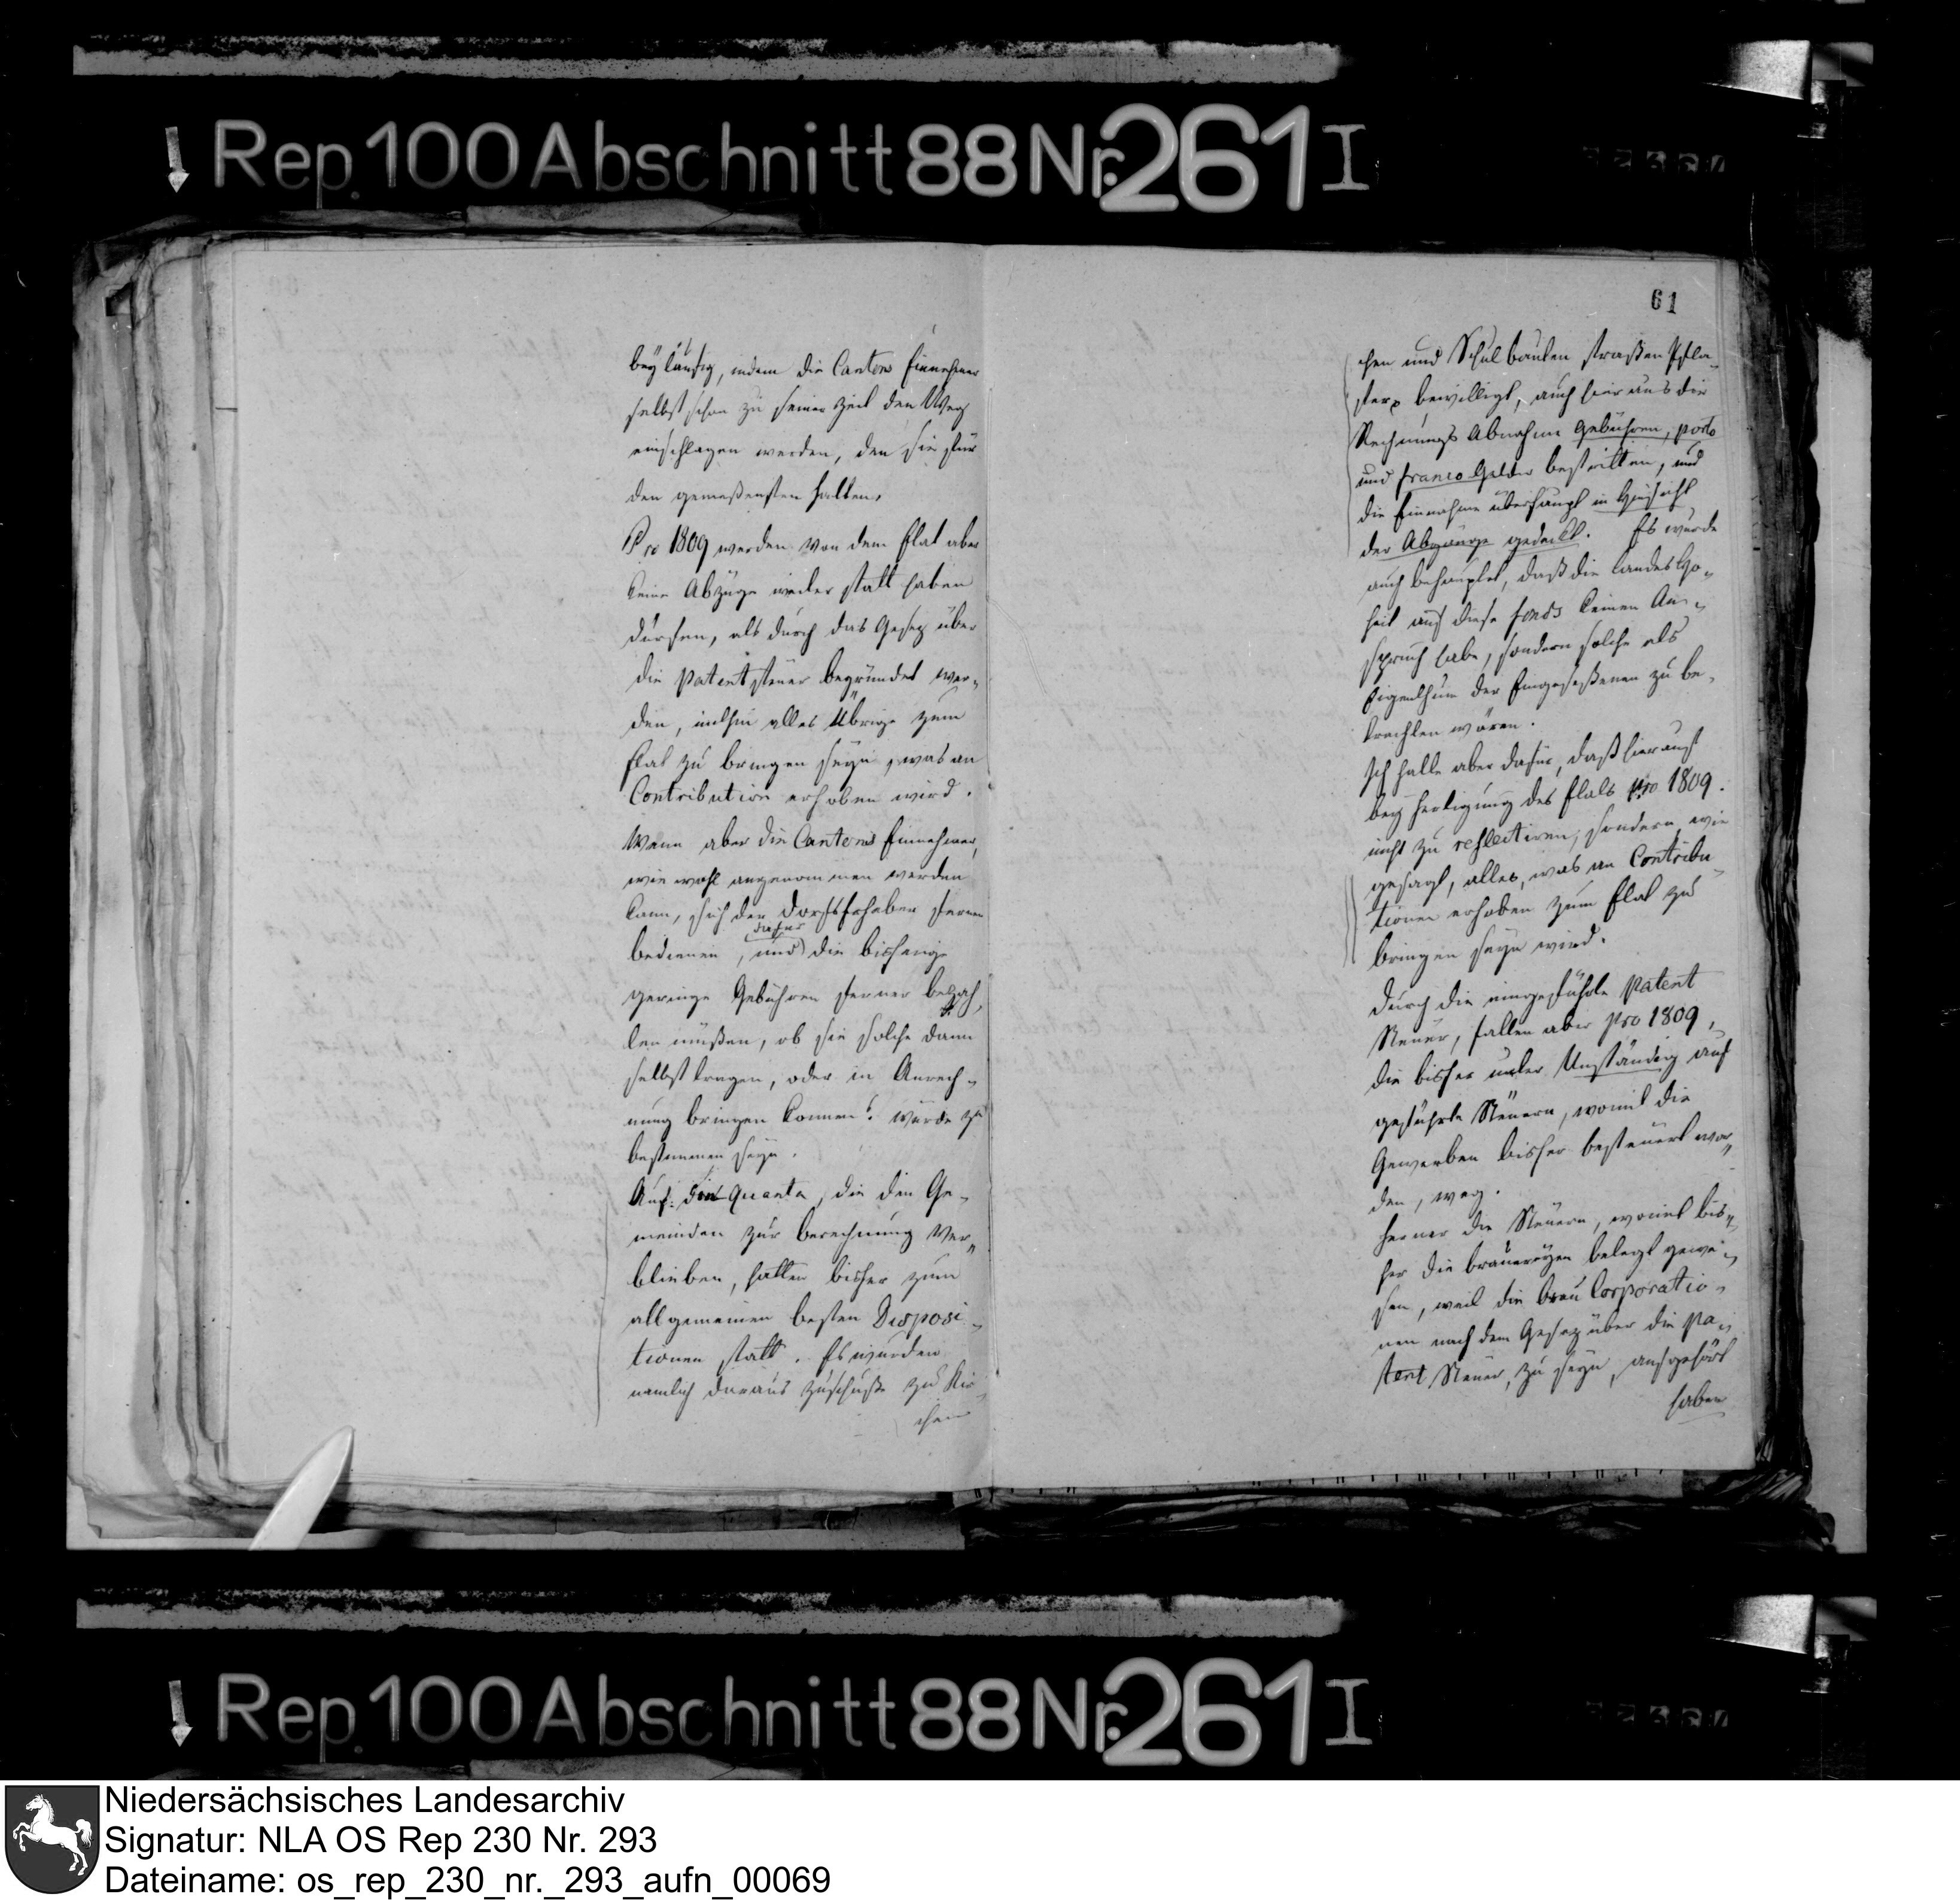 Rep. 100 Abschnitt 88 Nr. 261 I
beyläufig, indem die Cantons Einnehmer
selbst schon zu seiner Zeit den Weg
einschlagen werden, den sie für
den gemeßensten halten.
Pro 1809 werden von dem Etat aber
keine Abzüge weiter statt haben
dürfen, als durch das Gesez über
die Patentsteuer begründet wer„
den, mithin alles Übrige zum
Etat zu bringen seyn, was an
Contribution erhoben wird.
Wenn aber die Cantons Einnehmer,
wie wohl angenommen werden
kann, sich der Dorfserheber ferner
dafur
bedienen, und die bisherige
geringe Gebühren ferner bezah„
len müßen, ob sie solche dann
selbst tragen, oder in Anrech„
nung bringen können? würde zu
bestimmen seyn.
Auf die Quanta, die den Ge„
meinden zur berechnung ver„
blieben, hatten bisher zum
allgemeinen besten Disposi„
tionen statt. Es wurden
nemlich daraus Zuschuße zu Kir„
chen
61
chen und Schulbauten straßen Pfla„
ster bewilligt, auch hieraus die
Rechnungs Abnahme Gebühren, porto
und franco Gelder bestritten, und
die Einnahme überhaupt in Hinsicht
der Abgänge gedeckt. Es wurde
auch behauptet, daß die Landes Ho„
heit auf diese fonds keinen An„
spruch habe, sondern solche als
Eigenthum der Eingeseßenen zu be„
trachten wären.
Ich halte aber dafür, daß hierauf
bey fertigung des Etats pro 1809.
nicht zu reflectiren, sondern wie
gesagt, alles, was an Contribu„
tionen erhoben zum Etat zu
bringen seyn wird.
Durch die eingeführte Patent
Steuer, fallen aber pro 1809,
die bisher unter Unständig auf
geführte Steuern, womit die
Gewerben bisher besteuert wor„
den, weg.
ferner die Steuern, womit bis„
her die brauereyen belegt gewe„
sen, weil die brau Corporatio„
nen nach dem Gesez über die Pa„
tent Steuer, zu seyn, aufgehört
haben
Rep. 100 Abschnitt 88 Nr. 261 I
Niedersächsisches Landesarchiv
Signatur: NLA OS Rep 230 Nr. 293
Dateiname: os_rep_230_nr._293_aufn_00069